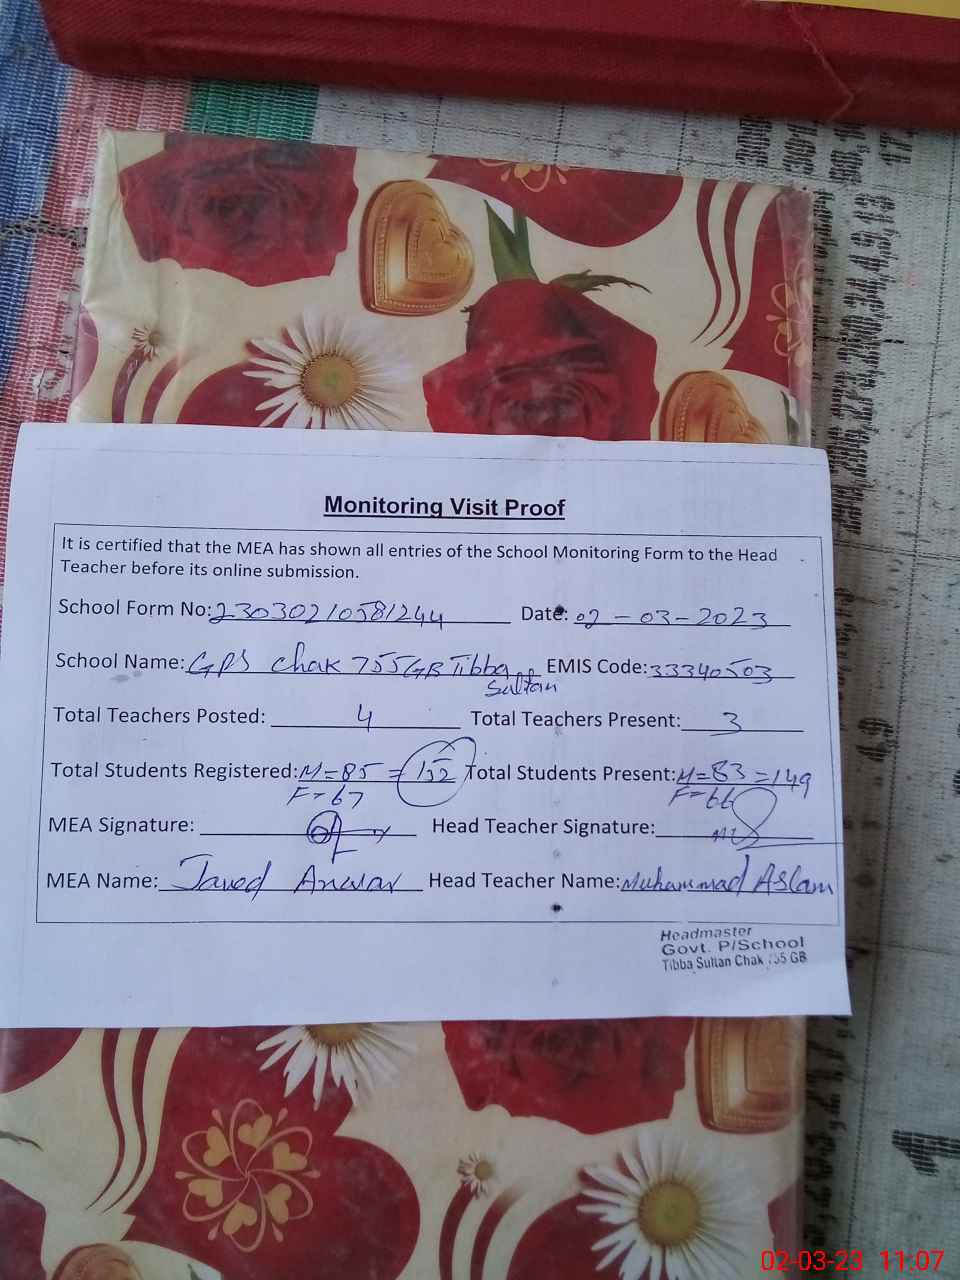 Monitoring Visit Proof
It is certified that the MEA has shown all entries of the School Monitoring Form to the Head
Teacher before its online submission.
School Form No: 23030210581244 Date: 02-03-2023
School Name: GPS Chak 755GB Tibba Sultan EMIS Code: 33340503
Total Teachers Posted: 4 Total Teachers Present: 3
Total Students Registered: M=85 = 152 Total Students Present: M=83 = 149
F=67 F=66
MEA Signature: Head Teacher Signature:
MEA Name: Javed Anwar Head Teacher Name: Muhammad Aslam
Headmaster
Govt. P/School
Tibba Sultan Chak 755 GB
02-03-23 11:07